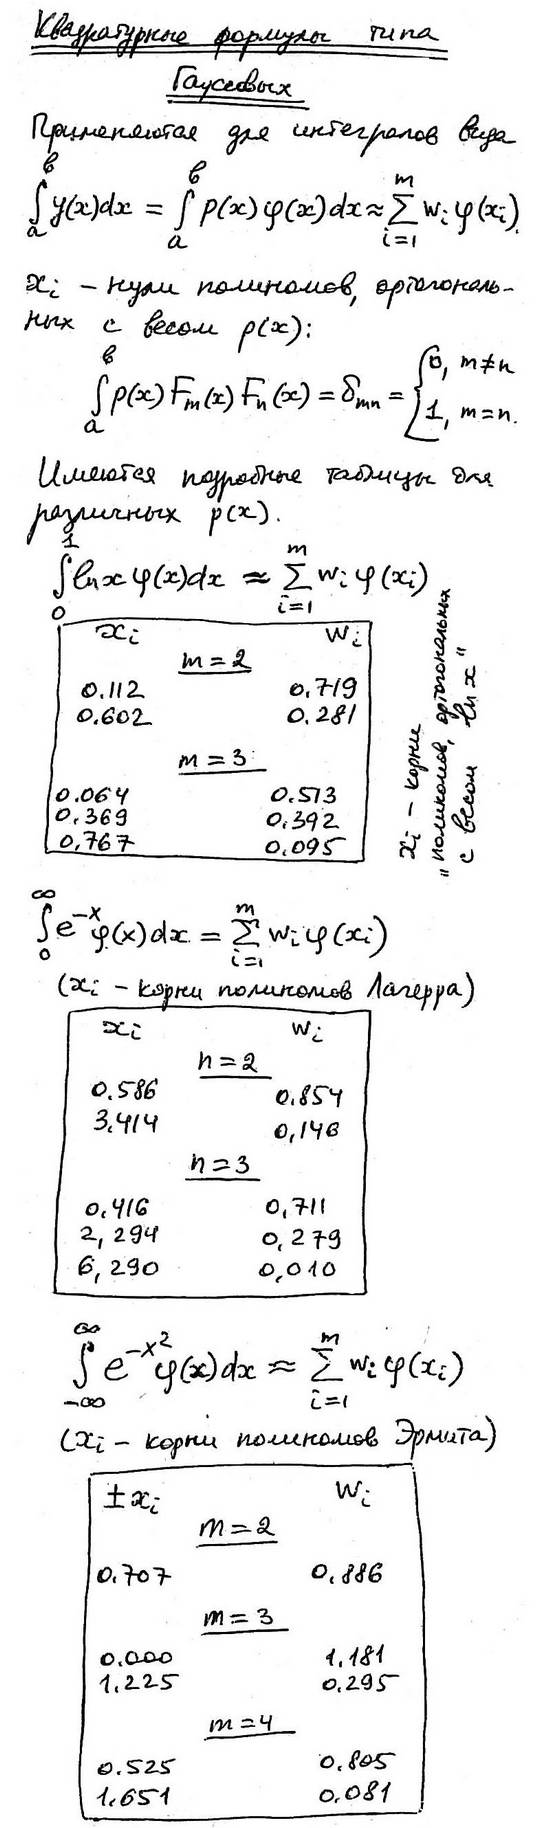 Квадратурные формулы типа
Гауссовых
Применяются для интегралов вида
∫_a^b y(x)dx = ∫_a^b p(x)φ(x)dx ≈ ∑_{i=1}^m w_i φ(x_i).
x_i – нули полиномов, ортогональ-
ных с весом p(x):
∫_a^b p(x)F_m(x)F_n(x) = δ_mn = { 0, m≠n
1, m=n.
Имеются подробные таблицы для
различных p(x).
∫_0^1 ln x φ(x)dx ≈ ∑_{i=1}^m w_i φ(x_i)
x_i w_i
m=2
0.112 0.719
0.602 0.281
m=3
0.064 0.513
0.369 0.392
0.767 0.095
x_i – корни
"полиномов, ортогональных
с весом ln x"
∫_0^∞ e^{-x} φ(x)dx = ∑_{i=1}^m w_i φ(x_i)
(x_i – корни полиномов Лагерра)
x_i w_i
n=2
0.586 0.854
3.414 0,146
n=3
0,416 0,711
2,294 0,279
6,290 0,010
∫_{-∞}^∞ e^{-x^2} φ(x)dx ≈ ∑_{i=1}^m w_i φ(x_i)
(x_i – корни полиномов Эрмита)
±x_i w_i
m=2
0.707 0.886
m=3
0.000 1.181
1.225 0.295
m=4
0.525 0.805
1.651 0.081